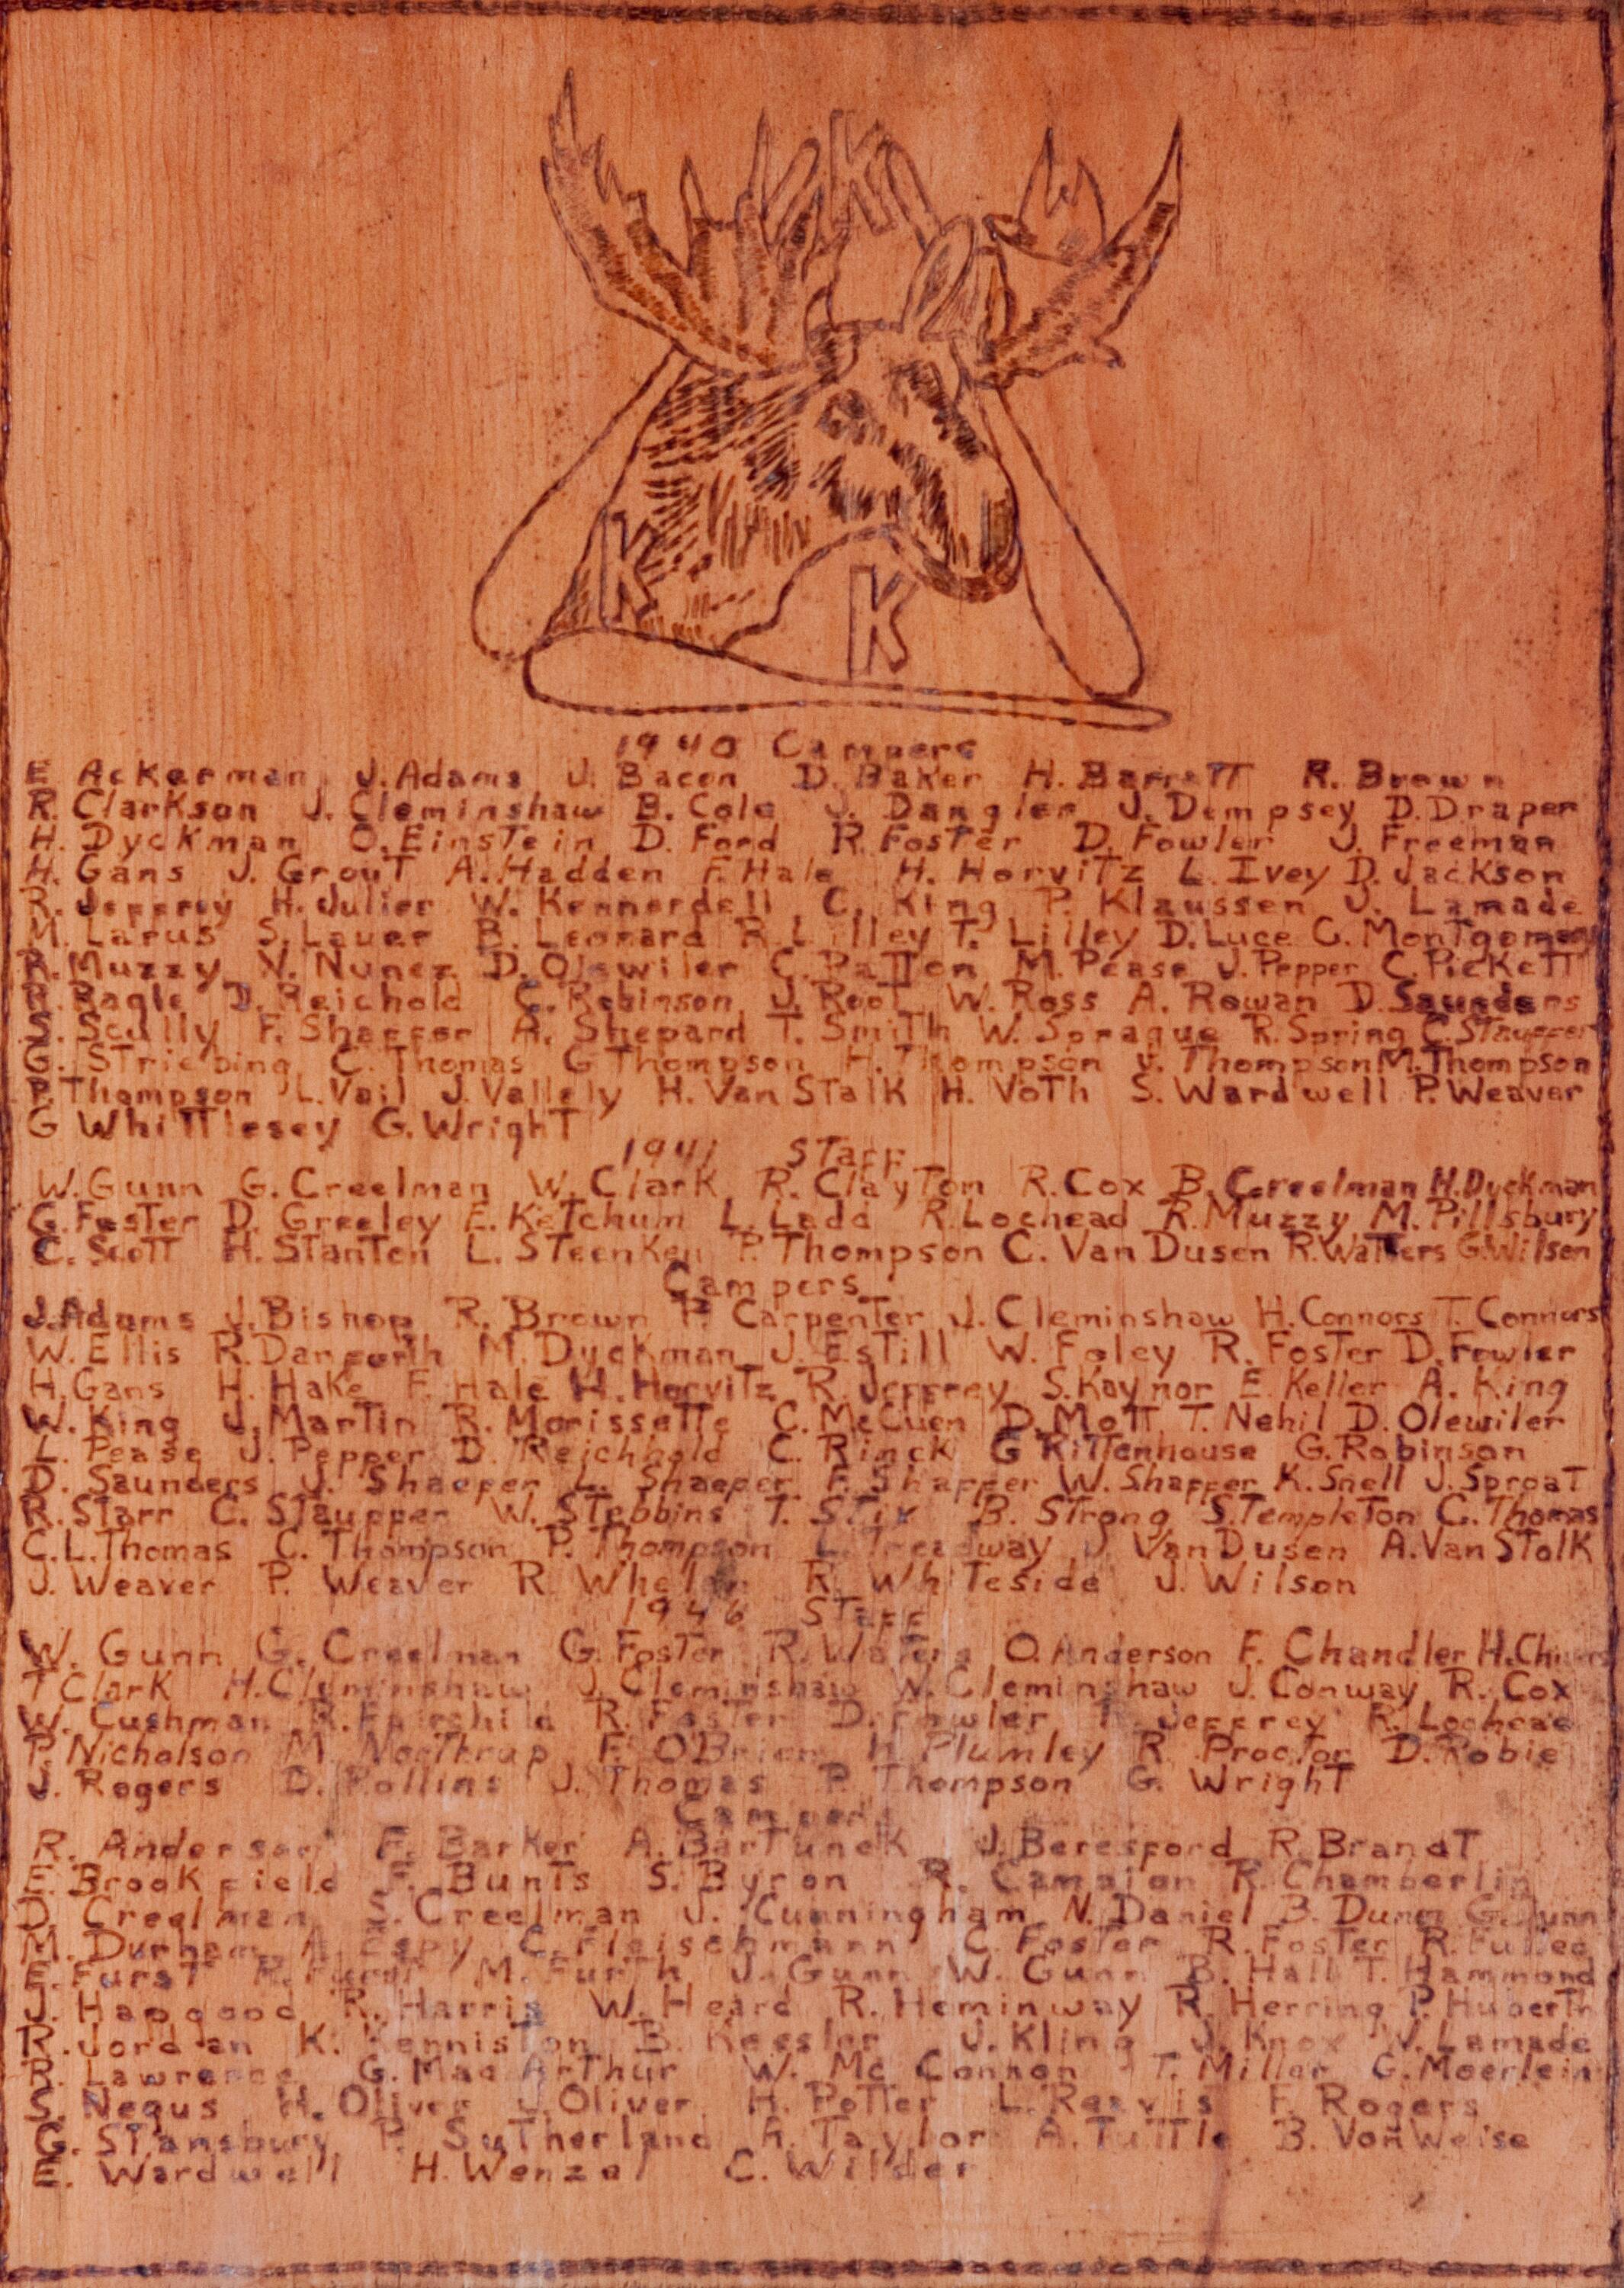 K
K K
1940 Campers
E. Ackerman J. Adams J. Bacon D. Baker H. Barrett R. Brown
R. Clarkson J. Cleminshaw B. Cole J. Dangler J. Dempsey D. Draper
H. Dyckman O. Einstein D. Ford R. Foster D. Fowler J. Freeman
H. Gans J. Grout A. Hadden F. Hale H. Horvitz L. Ivey D. Jackson
R. Jeffrey H. Julier W. Kennerdell C. King P. Klaussen J. Lamade
M. Larus S. Lauer B. Leonard R. Lilley T. Lilley D. Luce G. Montgomery
R. Muzzy N. Nunez D. Olewiler C. Patton M. Pease J. Pepper C. Pickett
R. Ragle D. Reichold G. Robinson J. Root W. Ross A. Rowan D. Saunders
S. Scully F. Shaffer A. Shepard T. Smith W. Sprague R. Spring C. Stauffer
G. Striebing C. Thomas G Thompson H. Thompson J. Thompson M. Thompson
P. Thompson L. Vail J. Vallely H. Van Stalk H. Voth S. Wardwell P. Weaver
G Whittlesey G. Wright
1941 Staff
W. Gunn G. Creelman W. Clark R. Clayton R. Cox B. Creelman H. Dyckman
G. Foster D. Greeley E. Ketchum L. Ladd R. Lochead R. Muzzy M. Pillsbury
C. Scott H. Stanton L. Steenken P. Thompson C. Van Dusen R. Watters G. Wilson
Campers
J. Adams J. Bishop R. Brown P. Carpenter J. Cleminshaw H. Connors T. Connors
W. Ellis R. Danforth M. Dyckman J. Estill W. Foley R. Foster D. Fowler
H. Gans H. Hake F. Hale H. Horvitz R. Jeffrey S. Kaynor E. Keller A. King
W. King J. Martin R. Morissette C. McCuen D. Mott T. Nehil D. Olewiler
L. Pease J. Pepper D. Reichhold C. Rinck G Rittenhouse G. Robinson
D. Saunders J. Shaefer L. Shaefer F. Shaffer W. Shaffer K. Snell J. Sproat
R. Starr C. Stauffer W. Stebbins T. Stix B. Strong S. Templeton C. Thomas
C.L. Thomas C. Thompson P. Thompson L. Treadway J. Van Dusen A. Van Stolk
J. Weaver P. Weaver R. Whelan R. Whiteside J. Wilson
1946 Staff
W. Gunn G. Creelman G. Foster R. Waters O. Anderson F. Chandler H.
T Clark H. Cleminshaw J. Cleminshaw W. Cleminshaw J. Conway R. Cox
W. Cushman R. Fairchild R. Foster D. Fowler Jeffrey R. Lochead
P. Nicholson M. Northrup F. O'Brien H. Plumley R. Proctor D. Robie
J. Rogers D. Rollins J. Thomas P. Thompson G. Wright
Campers
R. Anderson F. Barker A. Bartunek J. Beresford R. Brandt
F. Brookfield F. Bunts S. Byron R. Campion R. Chamberlin
D. Creelman S. Creelman J. Cunningham N. Daniel B. Dunn G. Dunn
M. Durham A. Espy C. Fleischmann C. Foster R. Foster R.
E. Furst R. Furst M. Furth J. Gunn W. Gunn B. Hall T. Hammond
J. Hapgood R. Harris W. Heard R. Heminway R. Herring P. Huberth
R. Jordan K. Kenniston B. Kessler J. Kling J. Knox W. Lamade
R. Lawrence G. Mac Arthur W. Mc Connon T. Miller G. Moerlein
S. Negus H. Oliver J. Oliver H. Potter L. Reavis F. Rogers
G. Stansbury P. Sutherland A. Taylor A. Tuttle B. Von Weise
E. Wardwell H. Wenzel C. Wilder